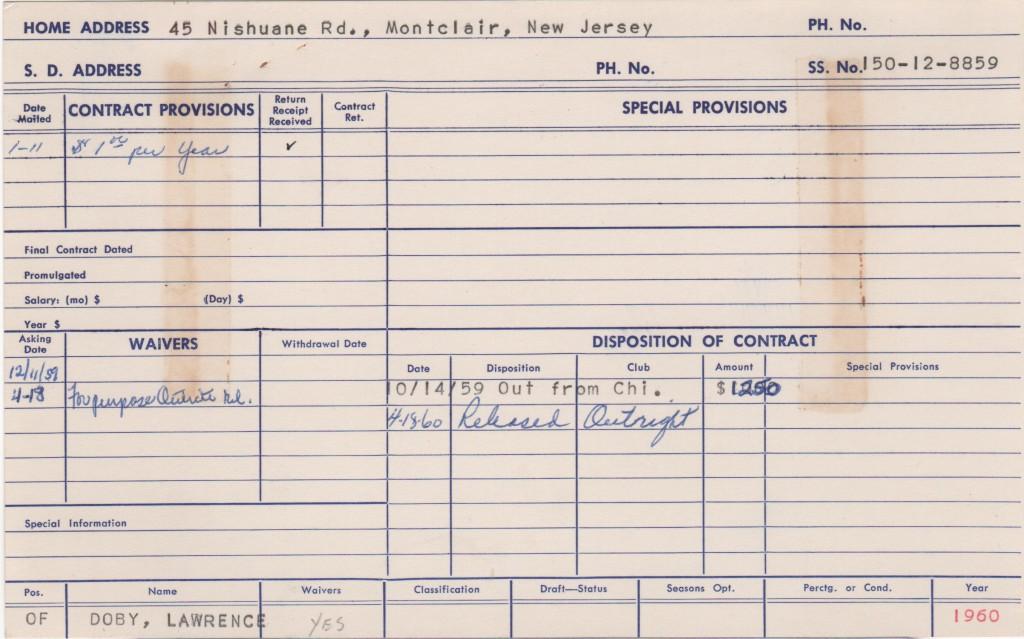 HOME ADDRESS 45 Nishuane Rd., Montclair, New Jersey PH. No.
S. D. ADDRESS PH. No. SS. No. 150-12-8859
Date Mailed CONTRACT PROVISIONS Return Receipt Received Contract Ret. SPECIAL PROVISIONS
1-11 $ 1.00 per Year ✓
Final Contract Dated
Promulgated
Salary: (mo) $ (Day) $
Year $
Asking Date WAIVERS Withdrawal Date DISPOSITION OF CONTRACT
Date Disposition Club Amount Special Provisions
12/11/59
10/14/59 Out from Chi. $1250
4-18 For purpose Outrite Rel.
4-18-60 Released Outright
Special Information
Pos. Name Waivers Classification Draft—Status Seasons Opt. Perctg. or Cond. Year
OF DOBY, LAWRENCE YES 1960